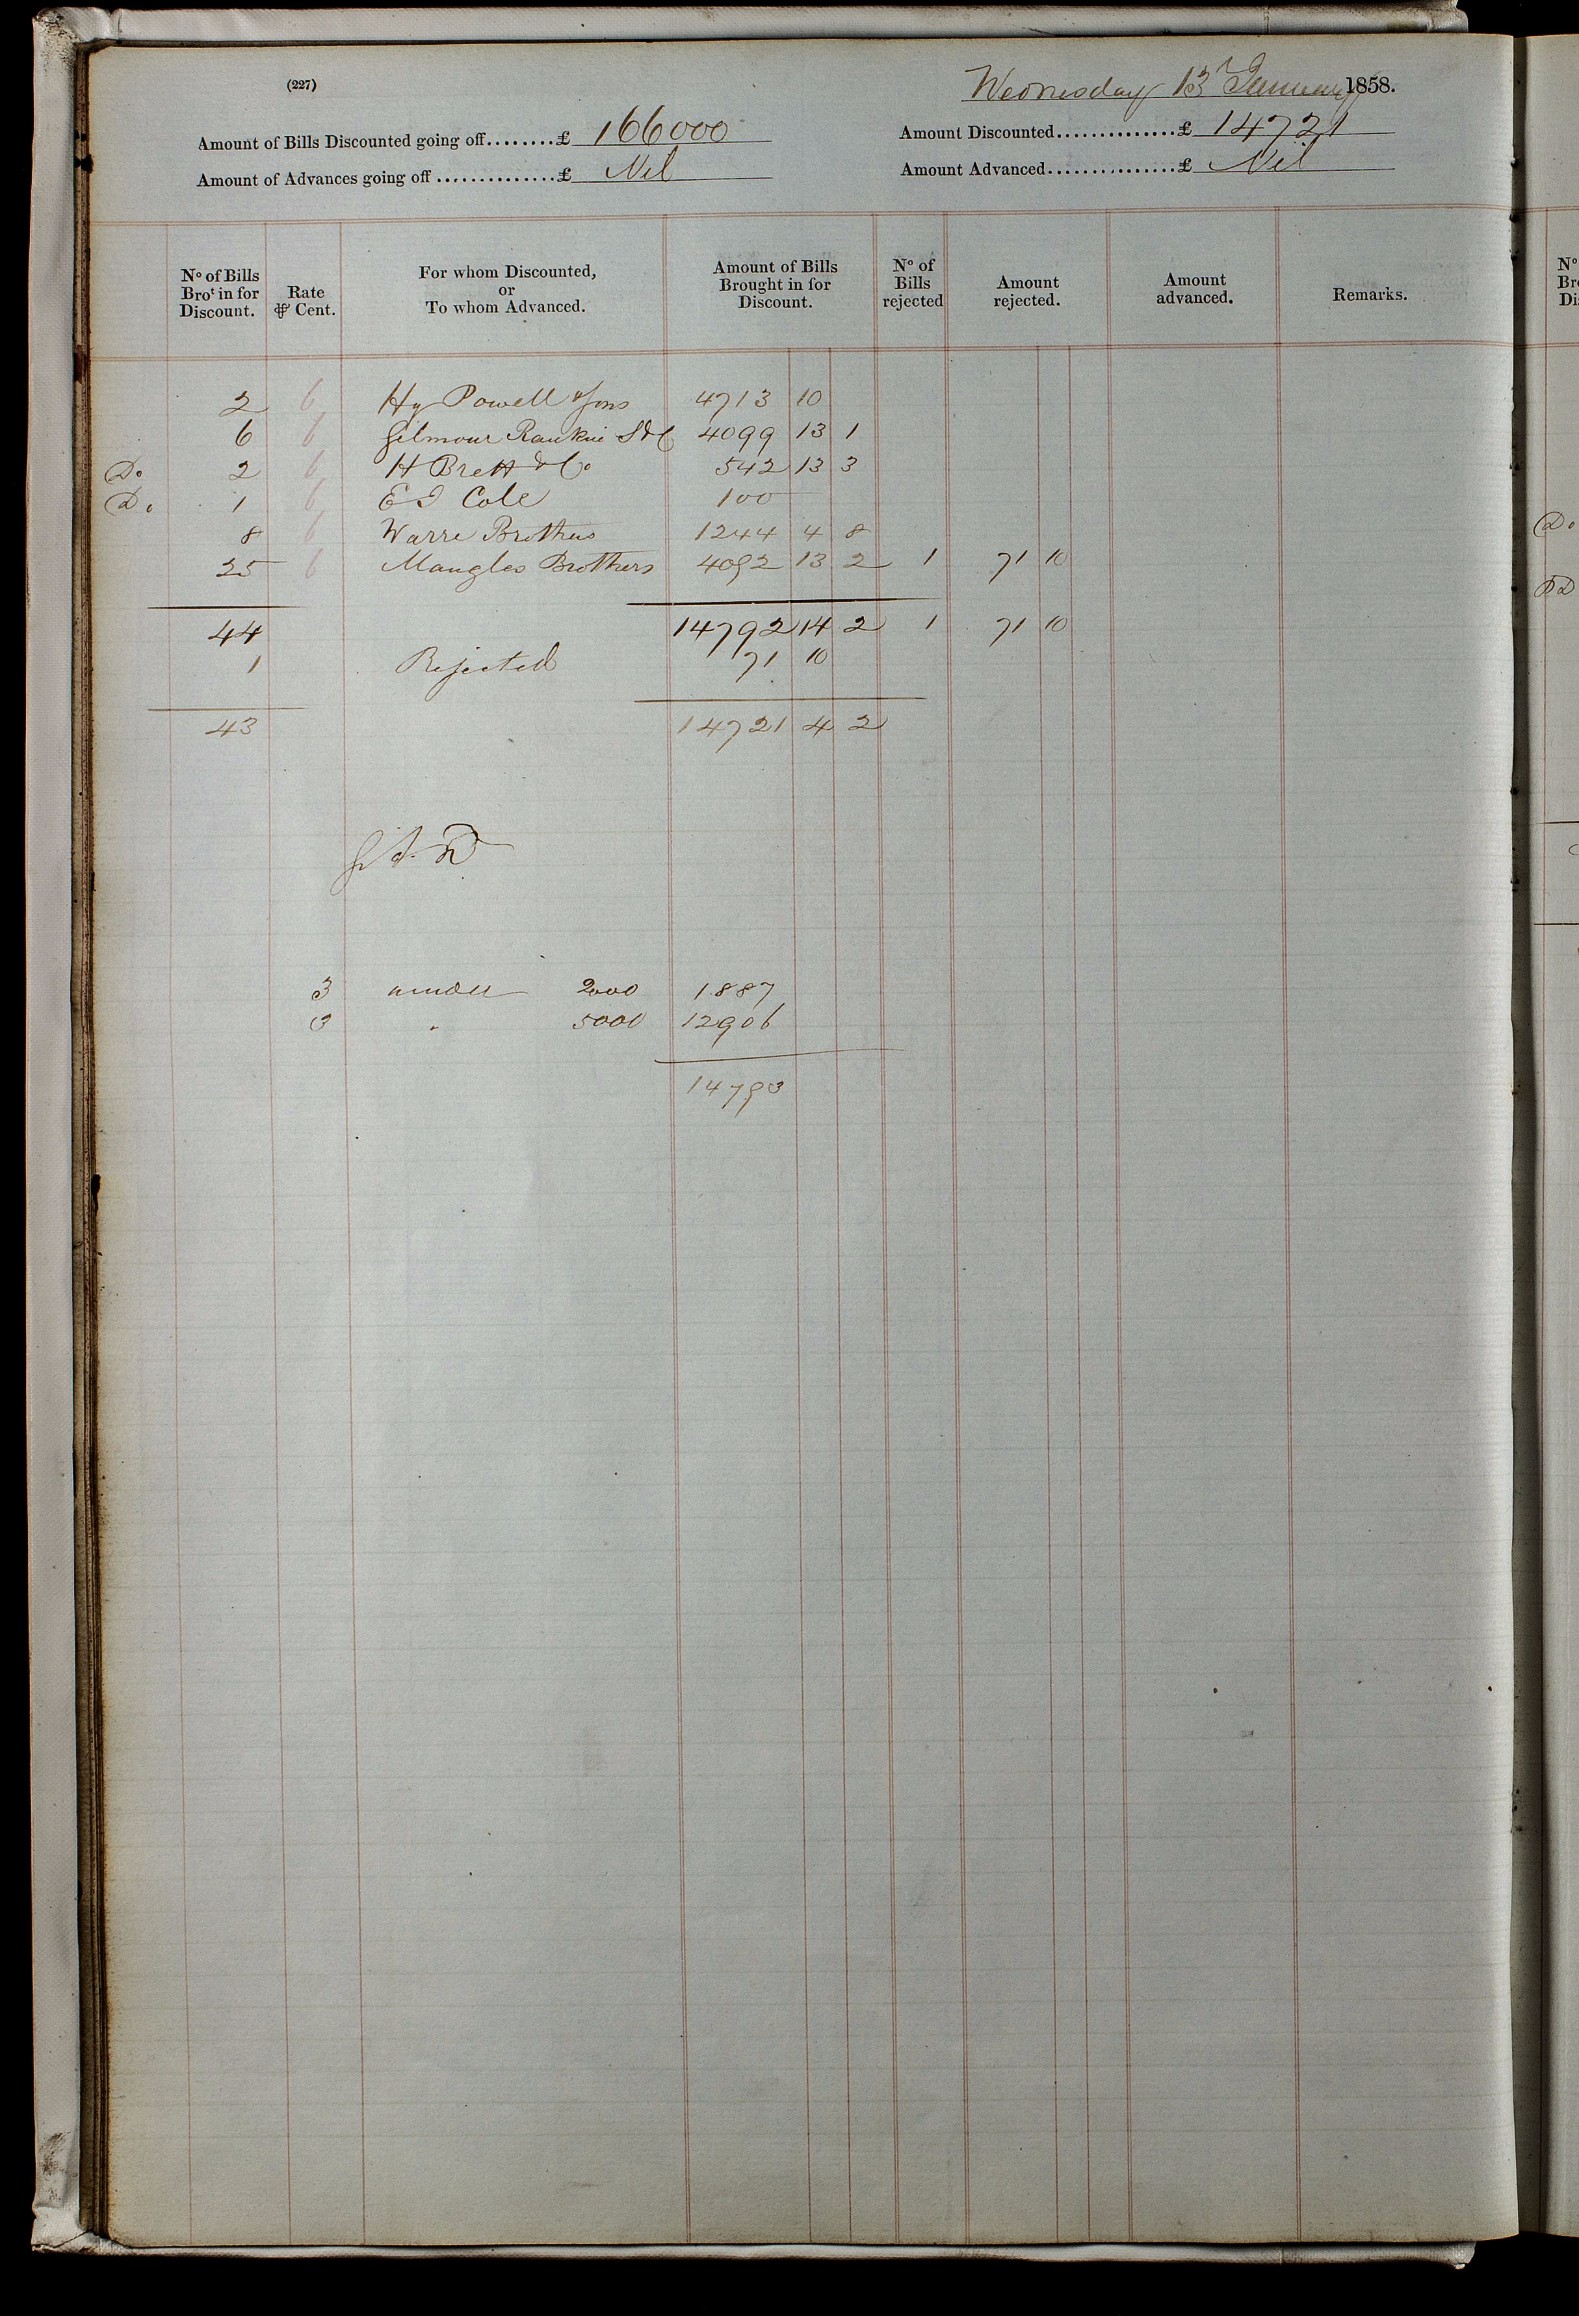 (227)
Wednesday 13th January 1858.
Amount of Bills Discounted going off........£ 166000
Amount Discounted..............£ 14721
Amount of Advances going off..............£ Nil
Amount Advanced...............£ Nil
No of Bills Brot in for Discount. Rate ⅌ Cent. For whom Discounted, or To whom Advanced. Amount of Bills Brought in for Discount. No of Bills rejected Amount rejected. Amount advanced. Remarks.
2 6 Hy Powell & Sons 4713 10
6 6 Gilmour Rankin S&C 4099 13 1
Do 2 6 H Brett & Co 542 13 3
Do 1 6 E I Cole 100
8 6 Warre Brothers 1244 4 8
25 6 Mangles Brothers 4092 13 2 1 71 10
44 14792 14 2 1 71 10
1 Rejected 71 10
43 14721 4 2
3 under 2000 1887
3 " 5000 12906
14793